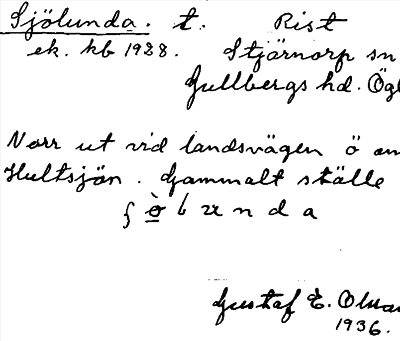 Sjölunda. t. Rist
ek. kb 1928. Stjärnorp sn
Gullbergs hd. Ögl
Norr ut vid landsvägen ö om
Hultsjön. Gammalt ställe
Gustaf E.
1936.